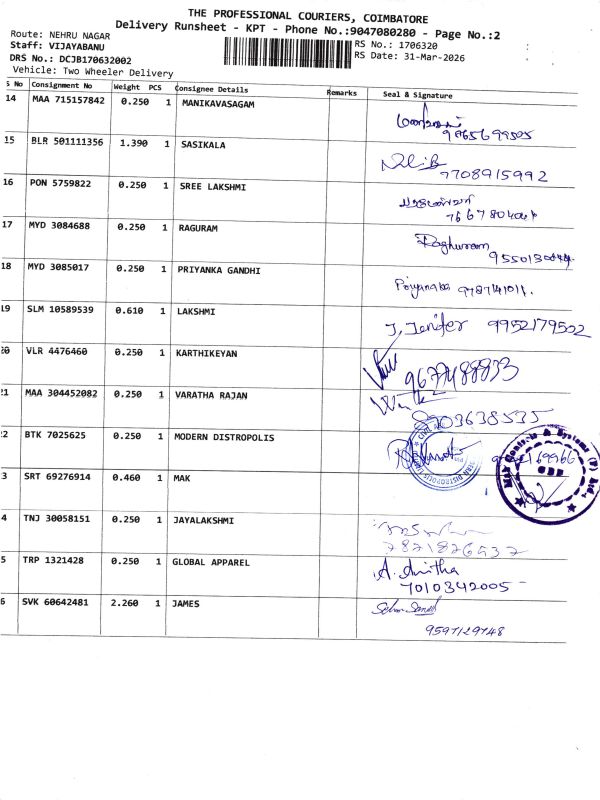 THE PROFESSIONAL COURIERS, COIMBATORE
Delivery Runsheet - KPT - Phone No.:9047080280 - Page No.:2
Route: NEHRU NAGAR
Staff: VIJAYABANU
RS No.: 1706320
DRS No.: DCJB170632002
RS Date: 31-Mar-2026
Vehicle: Two Wheeler Delivery
S No Consignment No Weight PCS Consignee Details Remarks Seal & Signature
14 MAA 715157842 0.250 1 MANIKAVASAGAM
9965699505
15 BLR 501111356 1.390 1 SASIKALA
7708915992
16 PON 5759822 0.250 1 SREE LAKSHMI
17 MYD 3084688 0.250 1 RAGURAM Raghuram
18 MYD 3085017 0.250 1 PRIYANKA GANDHI
19 SLM 10589539 0.610 1 LAKSHMI J. Jenifer 9952179502
20 VLR 4476460 0.250 1 KARTHIKEYAN
21 MAA 304452082 0.250 1 VARATHA RAJAN
8703638535
22 BTK 7025625 0.250 1 MODERN DISTROPOLIS
3 SRT 69276914 0.460 1 MAK
4 TNJ 30058151 0.250 1 JAYALAKSHMI
5 TRP 1321428 0.250 1 GLOBAL APPAREL A. Anitha
7010342005
6 SVK 60642481 2.260 1 JAMES
9597129748